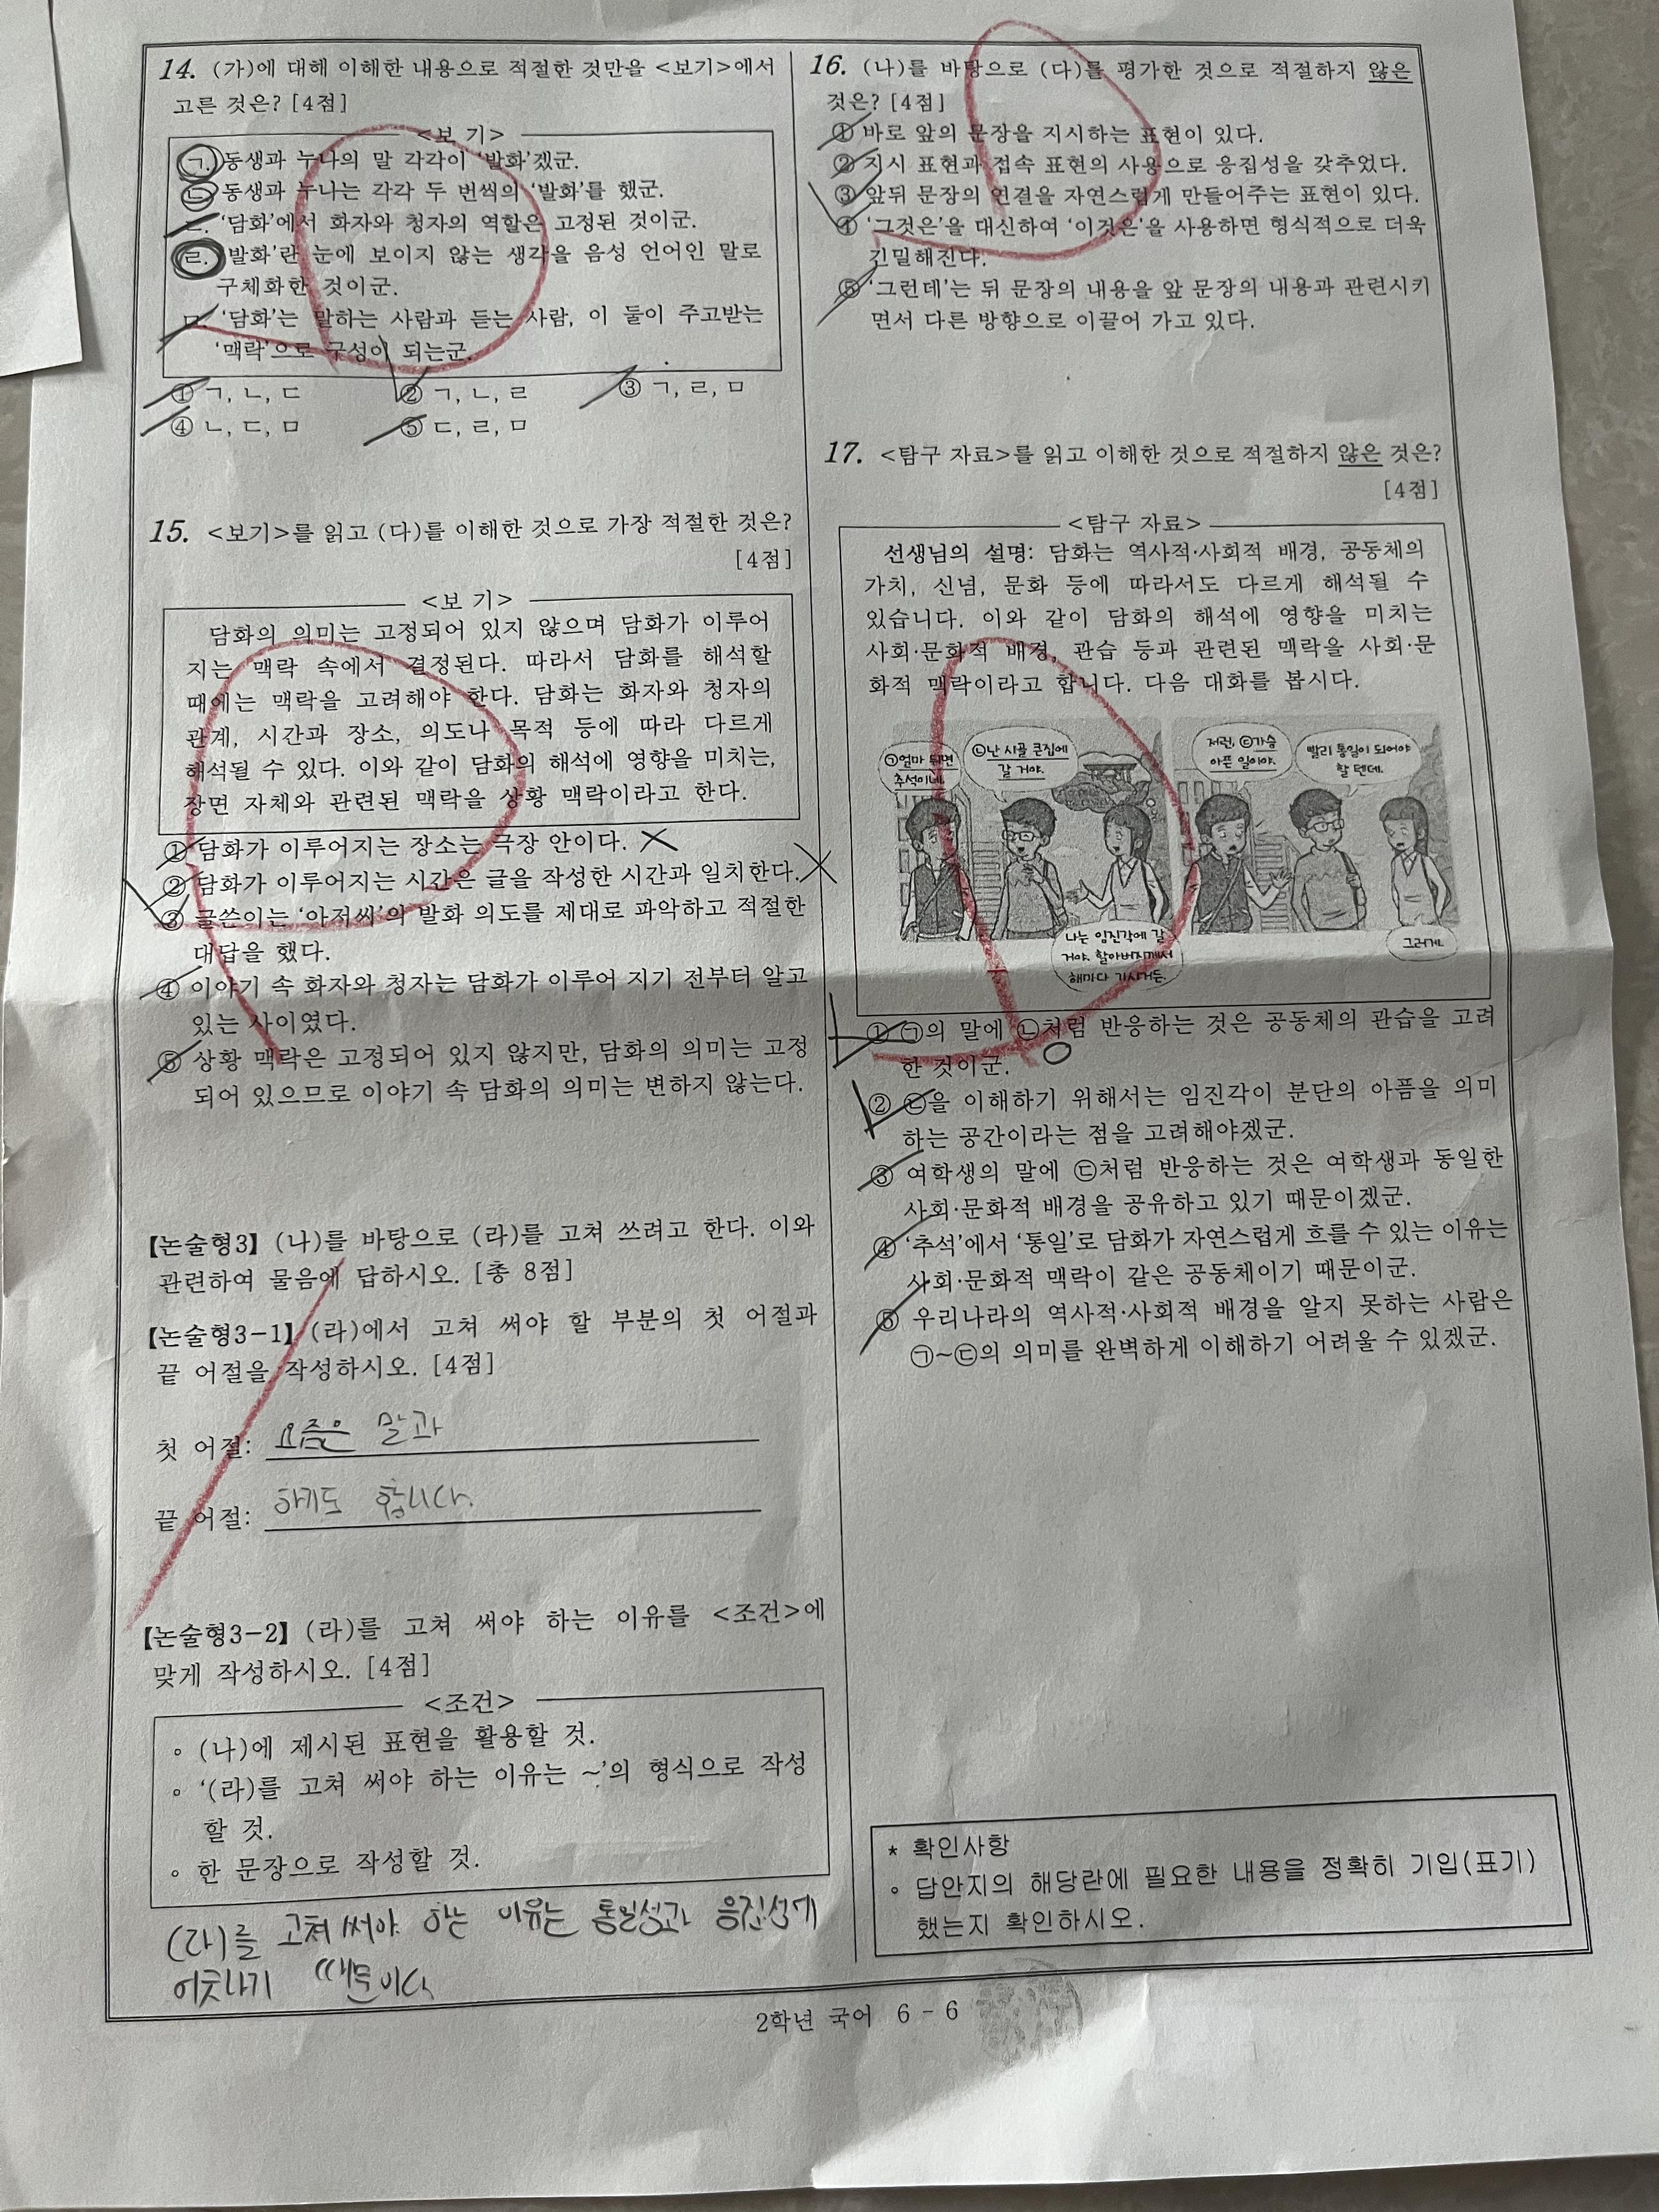 14. (가)에 대해 이해한 내용으로 적절한 것만을 <보기>에서
고른 것은? [4점]
<보 기>
ㄱ. 동생과 누나의 말 각각이 '발화'겠군.
ㄴ. 동생과 누나는 각각 두 번씩의 '발화'를 했군.
ㄷ. '담화'에서 화자와 청자의 역할은 고정된 것이군.
ㄹ. '발화'란 눈에 보이지 않는 생각을 음성 언어인 말로
구체화한 것이군.
ㅁ. '담화'는 말하는 사람과 듣는 사람, 이 둘이 주고받는
'맥락'으로 구성이 되는군.
① ㄱ, ㄴ, ㄷ ② ㄱ, ㄴ, ㄹ ③ ㄱ, ㄹ, ㅁ
④ ㄴ, ㄷ, ㅁ ⑤ ㄷ, ㄹ, ㅁ
15. <보기>를 읽고 (다)를 이해한 것으로 가장 적절한 것은?
[4점]
<보 기>
담화의 의미는 고정되어 있지 않으며 담화가 이루어
지는 맥락 속에서 결정된다. 따라서 담화를 해석할
때에는 맥락을 고려해야 한다. 담화는 화자와 청자의
관계, 시간과 장소, 의도나 목적 등에 따라 다르게
해석될 수 있다. 이와 같이 담화의 해석에 영향을 미치는,
장면 자체와 관련된 맥락을 상황 맥락이라고 한다.
① 담화가 이루어지는 장소는 극장 안이다.
② 담화가 이루어지는 시간은 글을 작성한 시간과 일치한다.
③ 글쓴이는 '아저씨'의 발화 의도를 제대로 파악하고 적절한
대답을 했다.
④ 이야기 속 화자와 청자는 담화가 이루어 지기 전부터 알고
있는 사이였다.
⑤ 상황 맥락은 고정되어 있지 않지만, 담화의 의미는 고정
되어 있으므로 이야기 속 담화의 의미는 변하지 않는다.
【논술형3】 (나)를 바탕으로 (라)를 고쳐 쓰려고 한다. 이와
관련하여 물음에 답하시오. [총 8점]
【논술형3-1】 (라)에서 고쳐 써야 할 부분의 첫 어절과
끝 어절을 작성하시오. [4점]
첫 어절: 요즘은 말과
끝 어절: 하기도 합니다.
【논술형3-2】 (라)를 고쳐 써야 하는 이유를 <조건>에
맞게 작성하시오. [4점]
<조건>
◦ (나)에 제시된 표현을 활용할 것.
◦ '(라)를 고쳐 써야 하는 이유는 ~'의 형식으로 작성
할 것.
◦ 한 문장으로 작성할 것.
(라)를 고쳐 써야 하는 이유는 통일성과 응집성에
어긋나기 때문이다
16. (나)를 바탕으로 (다)를 평가한 것으로 적절하지 않은
것은? [4점]
① 바로 앞의 문장을 지시하는 표현이 있다.
② 지시 표현과 접속 표현의 사용으로 응집성을 갖추었다.
③ 앞뒤 문장의 연결을 자연스럽게 만들어주는 표현이 있다.
④ '그것은'을 대신하여 '이것은'을 사용하면 형식적으로 더욱
긴밀해진다.
⑤ '그런데'는 뒤 문장의 내용을 앞 문장의 내용과 관련시키
면서 다른 방향으로 이끌어 가고 있다.
17. <탐구 자료>를 읽고 이해한 것으로 적절하지 않은 것은?
[4점]
<탐구 자료>
선생님의 설명: 담화는 역사적·사회적 배경, 공동체의
가치, 신념, 문화 등에 따라서도 다르게 해석될 수
있습니다. 이와 같이 담화의 해석에 영향을 미치는
사회·문화적 배경, 관습 등과 관련된 맥락을 사회·문
화적 맥락이라고 합니다. 다음 대화를 봅시다.
㉠얼마 뒤면
추석이네.
㉡난 시골 큰집에
갈 거야.
나는 임진각에 갈
거야. 할아버지께서
해마다 가시거든.
저런, ㉢가슴
아픈 일이야.
빨리 통일이 되어야
할 텐데.
그러게.
① ㉠의 말에 ㉡처럼 반응하는 것은 공동체의 관습을 고려
한 것이군.
② ㉢을 이해하기 위해서는 임진각이 분단의 아픔을 의미
하는 공간이라는 점을 고려해야겠군.
③ 여학생의 말에 ㉢처럼 반응하는 것은 여학생과 동일한
사회·문화적 배경을 공유하고 있기 때문이겠군.
④ '추석'에서 '통일'로 담화가 자연스럽게 흐를 수 있는 이유는
사회·문화적 맥락이 같은 공동체이기 때문이군.
⑤ 우리나라의 역사적·사회적 배경을 알지 못하는 사람은
㉠~㉢의 의미를 완벽하게 이해하기 어려울 수 있겠군.
* 확인사항
◦ 답안지의 해당란에 필요한 내용을 정확히 기입(표기)
했는지 확인하시오.
2학년 국어 6 - 6